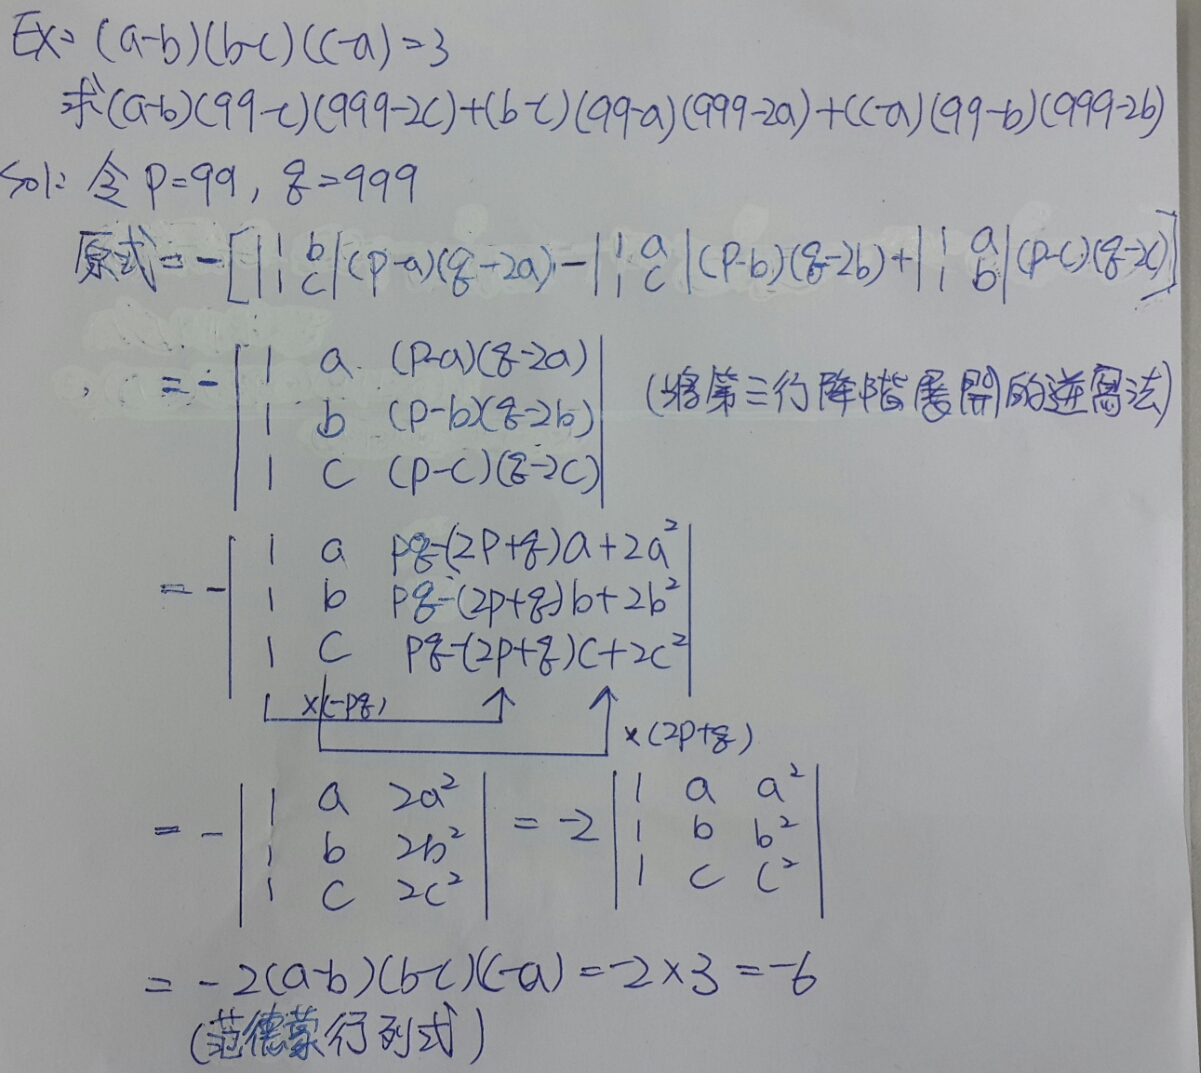 Ex: (a-b)(b-c)(c-a)=3
求(a-b)(99-c)(999-2c)+(b-c)(99-a)(999-2a)+(c-a)(99-b)(999-2b)
Sol: 令 p=99, q=999
原式 = -[|1 b; 1 c|(p-a)(q-2a) - |1 a; 1 c|(p-b)(q-2b) + |1 a; 1 b|(p-c)(q-2c)]
= -| 1 a (p-a)(q-2a) | (將第三行降階展開的逆寫法)
| 1 b (p-b)(q-2b) |
| 1 c (p-c)(q-2c) |
= -| 1 a pq-(2p+q)a+2a² |
| 1 b pq-(2p+q)b+2b² |
| 1 c pq-(2p+q)c+2c² |
×(-pq)
×(2p+q)
= -| 1 a 2a² | = -2| 1 a a² |
| 1 b 2b² | | 1 b b² |
| 1 c 2c² | | 1 c c² |
= -2(a-b)(b-c)(c-a) = -2×3 = -6
(范德蒙行列式)